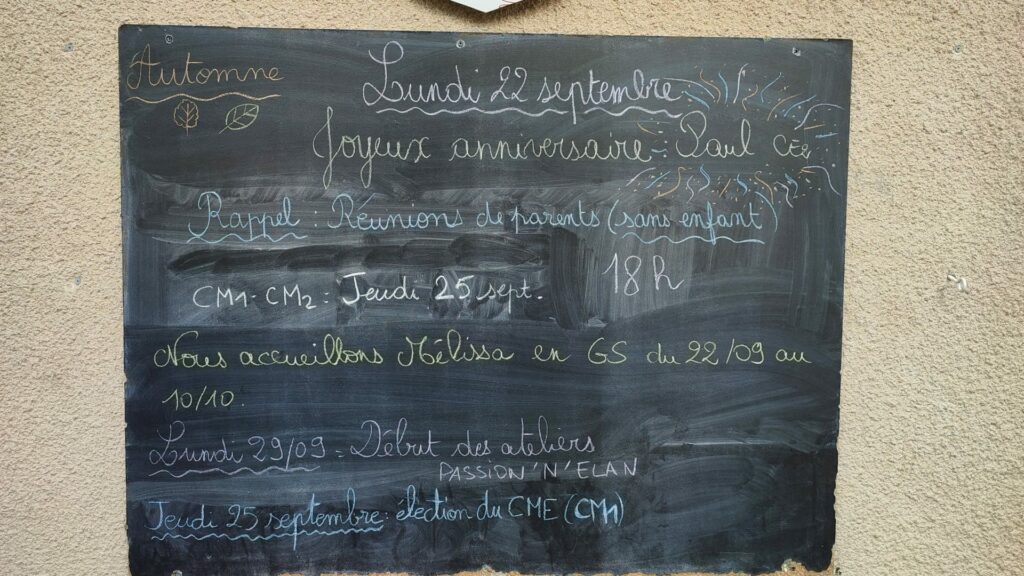 Automne
Lundi 22 septembre
Joyeux anniversaire : Paul CE2
Rappel : Réunions de parents (sans enfant)
18h
CM1-CM2 = Jeudi 25 sept.
Nous accueillons Mélissa en GS du 22/09 au
10/10.
Lundi 29/09 = Début des ateliers
PASSION'N'ELAN
Jeudi 25 septembre : élection du CME (CM1)